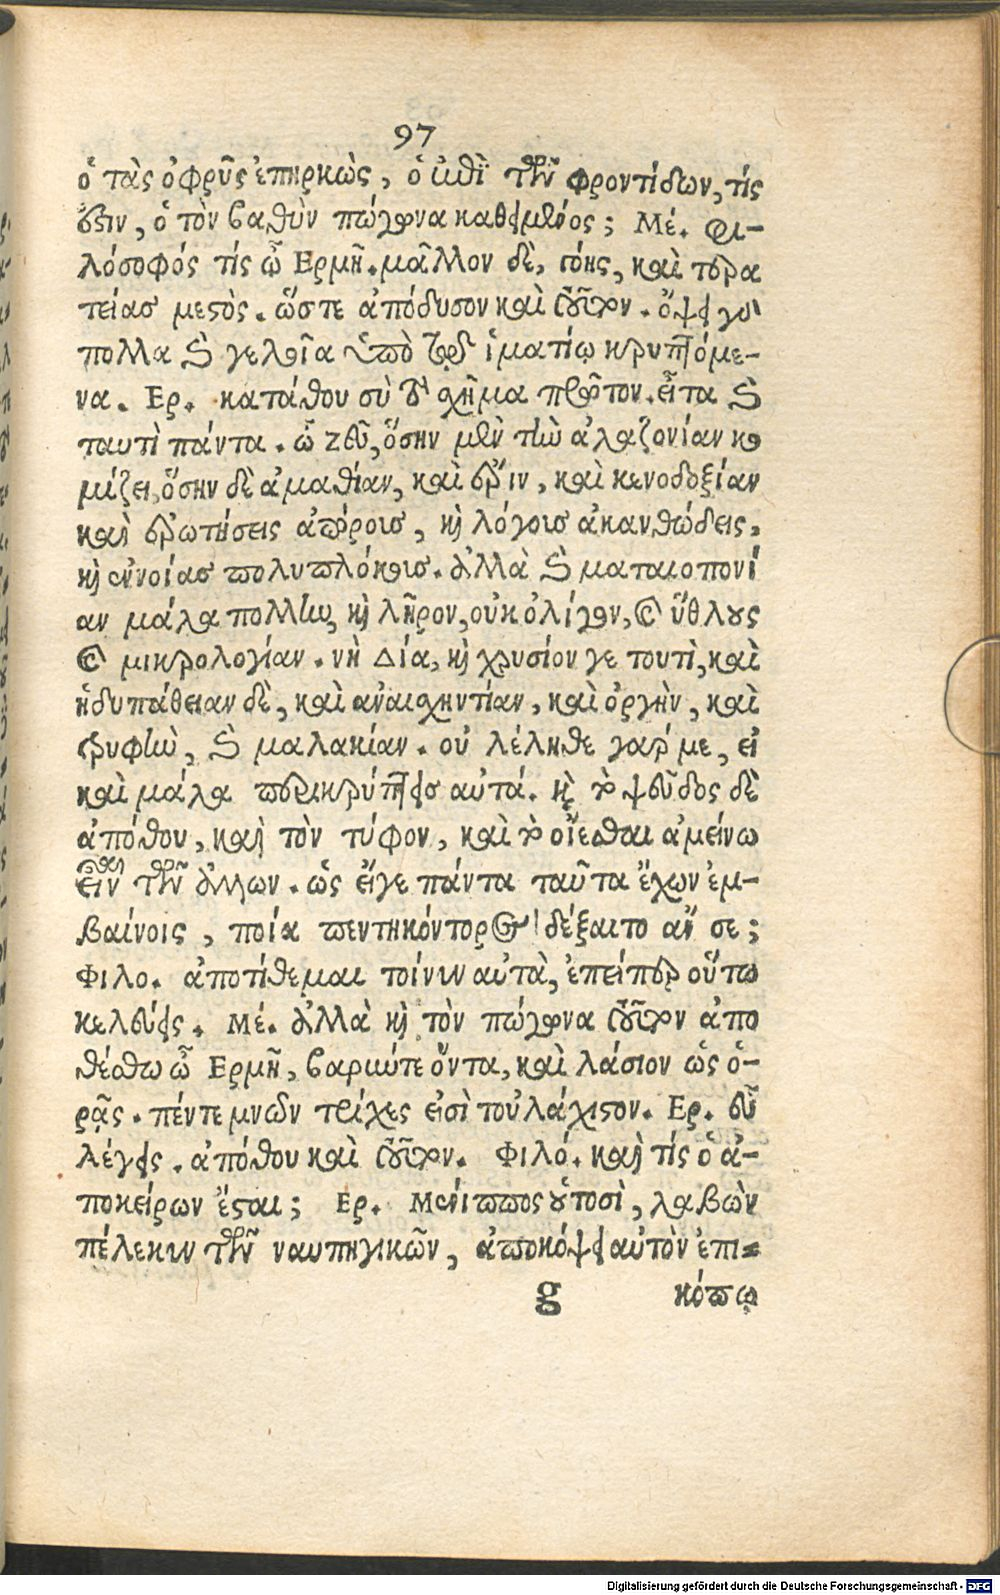 97
ὁ τὰς ὀφρῦς ἐπηρκὼς, ὁ ἐπὶ τῶν φροντίδων, τίς
ἐστιν, ὁ τὸν βαθὺν πώγωνα καθειμένος; Μέ. Φι-
λόσοφός τίς ὦ Ἑρμῆ. μᾶλλον δὲ, γόης, καὶ τερα
τείας μεστὸς. ὥστε ἀπόδυσον καὶ τοῦτον. ὄψει γὰρ
πολλα καὶ γελοῖα ὑπὸ τῷ ἱματίῳ κρυπτόμε-
να. Ερ. κατάθου σὺ τὸ σχῆμα πρῶτον. εἶτα καὶ
ταυτὶ πάντα. ὦ Ζεῦ, ὅσην μὲν τὴν ἀλαζονίαν κο
μίζει, ὅσην δὲ ἀμαθίαν, καὶ ἔριν, καὶ κενοδοξίαν
καὶ ἐρωτήσεις ἀπόροις, καὶ λόγοις ἀκανθώδεις,
καὶ ἐννοίας πολυπλόκοις. ἀλλὰ καὶ ματαιοπονί
αν μάλα πολλὴν, καὶ λῆρον, οὐκ ὀλίγον, καὶ ὕθλους
καὶ μικρολογίαν. νὴ Δία, καὶ χρυσίον γε τουτὶ, καὶ
ἡδυπάθειαν δὲ, καὶ ἀναισχηντίαν, καὶ ὀργὴν, καὶ
τρυφὴν, καὶ μαλακίαν. οὐ λέληθε γαρ με, εἰ
καὶ μάλα περικρύπτεις αὐτά. καὶ τὸ ψεῦδος δὲ
ἀπόθου, καὶ τὸν τύφον, καὶ τὸ οἴεσθαι ἀμείνω
εἶναι τῶν ἄλλων. ὡς εἴγε πάντα ταῦτα ἔχων ἐμ-
βαίνοις, ποία πεντηκόντορος δέξαιτο ἄν σε;
Φιλο. ἀποτίθεμαι τοίνυν αὐτὰ, ἐπείπερ οὕτω
κελεύεις. Μέ. ἀλλὰ καὶ τὸν πώγωνα τοῦτον ἀπο
θέσθω ὦ Ἑρμῆ, βαρύτε ὄντα, καὶ λάσιον ὡς ὁ-
ρᾷς. πέντε μνῶν τρίχες εἰσὶ τοὐλάχιστον. Ερ. εὖ
λέγεις. ἀπόθου καὶ τοῦτον. Φιλό. καὶ τίς ὁ ἀ-
ποκείρων ἔσται; Ερ. Μένιππος οὑτοσὶ, λαβὼν
πέλεκυν τῶν ναυπηγικῶν, ἀποκόψει αὐτὸν ἐπι-
g κόπῳ
Digitalisierung gefördert durch die Deutsche Forschungsgemeinschaft - DFG